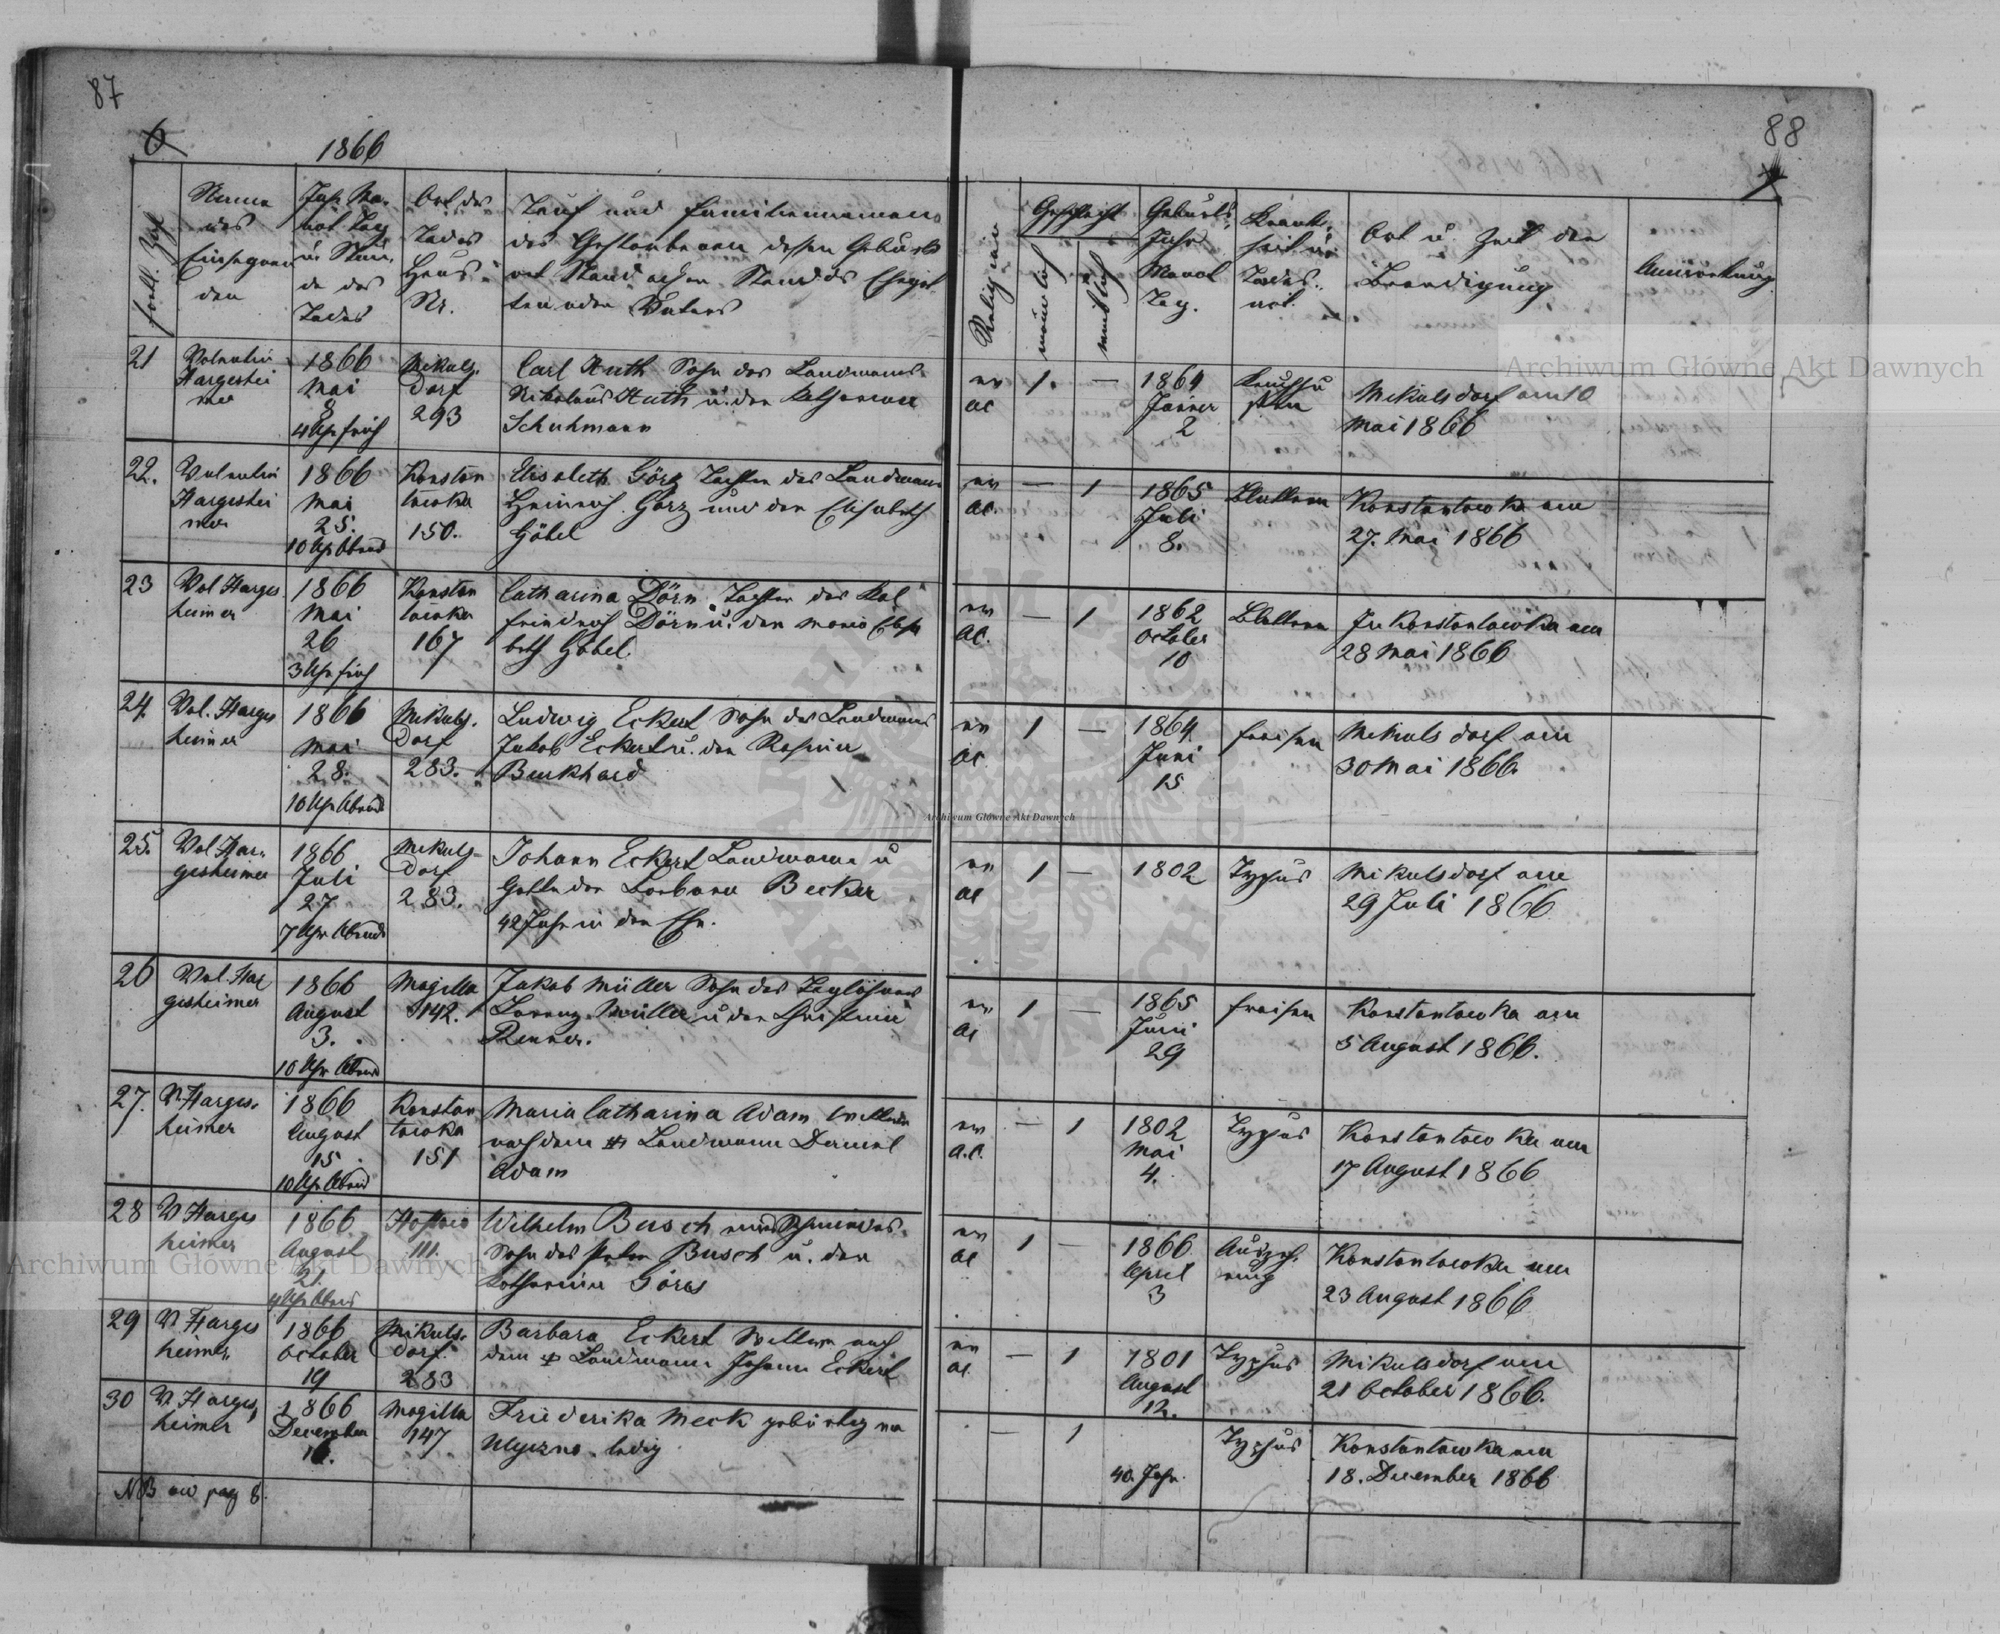 87
6
1866
88
fortl. Zahl
Name
des
Einsegnen
den
Jahr Mo-
nat Tag
u. Stun-
de des
Todes
Ort des
Todes
Haus-
Nr.
Tauf und Familiennamens
des Gestorbenen dessen Geburts
ort Stand
ten oder Vaters
Religion
Geschlecht
männlich
weiblich
Geburts-
Jahr
Monat
Tag.
Krank-
heit u.
Todes-
art.
Ort u. Zeit der
Beerdigung
Anmerkung
21
Valentin
Hargeshei
mer
1866
Mai
8
4 Uhr früh
Mikuls-
dorf
293
Carl Huth Sohn des Landmanns
Nikolaus Huth u. der Katharina
Schuhmann
ev
AC
1.
—
1864
Jänner
2
Keuchhu
sten
Mikulsdorf am 10
Mai 1866
22.
Valentin
Hargeshei
mer
1866
Mai
25.
10 Uhr Abend
Konstan
towka
150.
Elisabeth Görz Tochter des Landmann
Heinrich Görz und der Elisabeth
Göbel
ev
AC.
—
1
1865
Juli
8.
Blattern
Konstantowka am
27. Mai 1866
23
Val Harges
heimer
1866
Mai
26
3 Uhr früh
Konstan
towka
167
Catharina Dörn Tochter des
Friedrich Dörn u. der Maria Elisa
beth Göbel.
ev
AC.
—
1
1862
October
10
Blattern
In Konstantowka am
28 Mai 1866
24.
Val. Harges
heimer
1866
Mai
28.
10 Uhr Abend
Mikuls-
dorf
283.
Ludwig Eckert Sohn des Landmanns
Jakob Eckert u. der Rosina
Burkhard
ev
AC
1
—
1864.
Juni
15
Fraisen
Mikulsdorf am
30 Mai 1866.
25.
Val Har-
gesheimer
1866
Juli
27
7 Uhr Abends
Mikuls-
dorf
283.
Johann Eckert Landmann u
Gatte der Barbara Becker
42 Jahr in der Ehe.
ev
AC
1
—
1802
Typhus
Mikulsdorf am
29 Juli 1866
26
Val. Har
gesheimer
1866
August
3.
10 Uhr Abend
Mogilla
142.
Jakob Müller Sohn des Taglöhners
Lorenz Müller u. der Christina
Renner.
ev
AC
1
—
1865
Juni
29
Fraisen
Konstantowka am
5 August 1866.
27.
V. Harges-
heimer
1866
August
15
10 Uhr Abend
Konstan
towka
151
Maria Catharina Adam Wittwe
nach dem Landmann Daniel
Adam
ev
A.C.
—
1
1802
Mai
4.
Typhus
Konstantowka am
17 August 1866
28
V Harges
heimer
1866
August
21.
4 Uhr Abend
111.
Wilhelm Busch eines Schmiedes
Sohn des Peter Busch u. der
Katharina Görres
ev
AC
1
—
1866
April
3
Auszeh-
rung
Konstantowka am
23 August 1866
29
V. Harges
heimer
1866
October
19
Mikuls-
dorf.
283
Barbara Eckert Wittwe nach
dem Landmann Johann Eckert
ev
AC.
—
1
1801
August
12.
Typhus
Mikulsdorf am
21 October 1866.
30
V. Harges,
heimer
1866
December
16.
Mogilla
147
Friederika Meck gebürtig von
ledig
—
1
40. Jahr.
Typhus
Konstantowka am
18. December 1866
NB pag 8.
Archiwum Główne Akt Dawnych
Archiwum Główne Akt Dawnych
Archiwum Główne Akt Dawnych